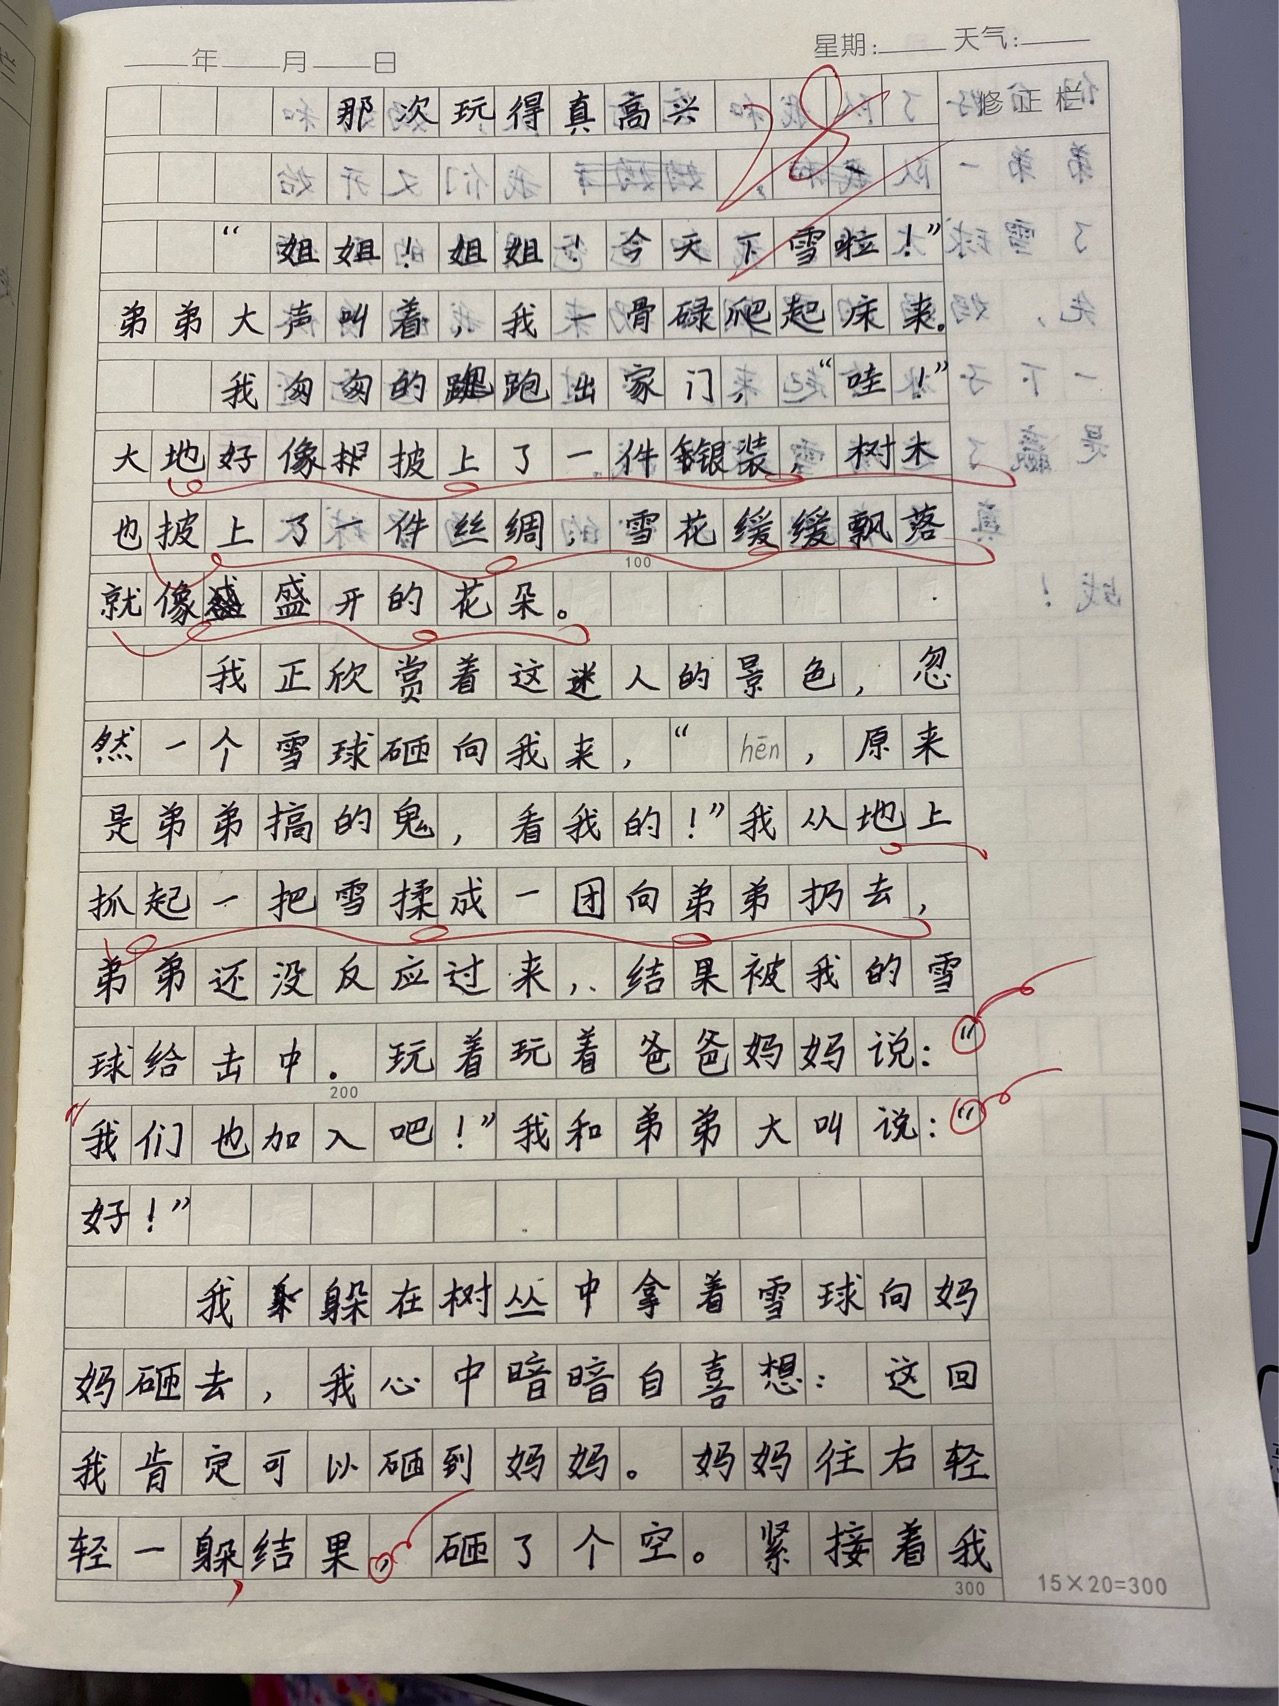 年 月 日 星期: 天气:
那次玩得真高兴 28
修正栏
“姐姐！姐姐！今天下雪啦！”
弟弟大声叫着，我一骨碌爬起床来。
我匆匆的跑出家门，“哇！”
大地好像披上了一件银装，树木
也披上了一件丝绸，雪花缓缓飘落
100
就像盛开的花朵。
我正欣赏着这迷人的景色，忽
然一个雪球砸向我来，“hēn，原来
是弟弟搞的鬼，看我的！”我从地上
抓起一把雪揉成一团向弟弟扔去，
弟弟还没反应过来，结果被我的雪
球给击中．玩着玩着爸爸妈妈说：“
200
“我们也加入吧！”我和弟弟大叫说：“
好！”
我躲在树丛中拿着雪球向妈
妈砸去，我心中暗暗自喜想：这回
我肯定可以砸到妈妈。妈妈往右轻
轻一躲，结果，砸了个空。紧接着我
300
15×20=300